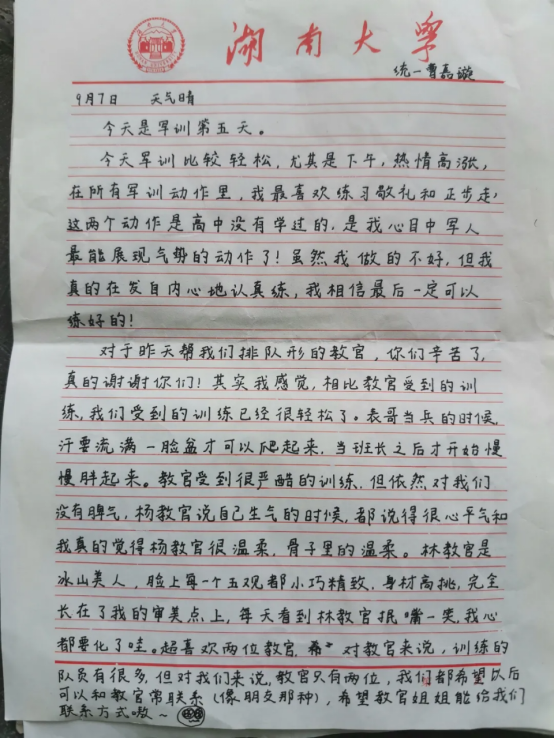 湖南大学
统一曹嘉璇
9月7日 天气晴
今天是军训第五天。
今天军训比较轻松，尤其是下午，热情高涨，
在所有军训动作里，我最喜欢练习敬礼和正步走，
这两个动作是高中没有学过的，是我心目中军人
最能展现气势的动作了！虽然我做的不好，但我
真的在发自内心地认真练，我相信最后一定可以
练好的！
对于昨天帮我们排队形的教官，你们辛苦了，
真的谢谢你们！其实我感觉，相比教官受到的训
练，我们受到的训练已经很轻松了。表哥当兵的时候，
汗要流满一脸盆才可以爬起来，当班长之后才开始慢
慢胖起来。教官受到很严酷的训练，但依然对我们
没有脾气，杨教官说自己生气的时候，都说得很心平气和
我真的觉得杨教官很温柔，骨子里的温柔。林教官是
冰山美人，脸上每一个五观都小巧精致，身材高挑，完全
长在了我的审美点上，每天看到林教官抿嘴一笑，我心
都要化了哇。超喜欢两位教官，对教官来说，训练的
队员有很多，但对我们来说，教官只有两位，我们都希望以后
可以和教官常联系（像朋友那种），希望教官姐姐能给我们
联系方式嗷～